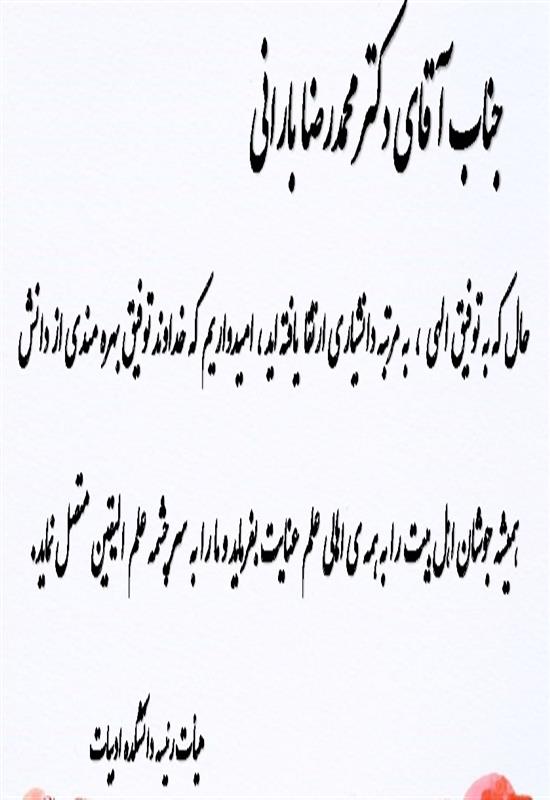 جناب آقای دکتر محمدرضا بارانی
حال که به توفیق الهی ، به مرتبه دانشیاری ارتقا یافته اید ، امیدواریم که خداوند توفیق بهره مندی از دانش
همیشه جوشان اهل بیت را به همه ی اهالی علم عنایت بفرماید و ما را به سرچشمه علم الیقین متصل نماید.
هیأت رئیسه دانشکده ادبیات